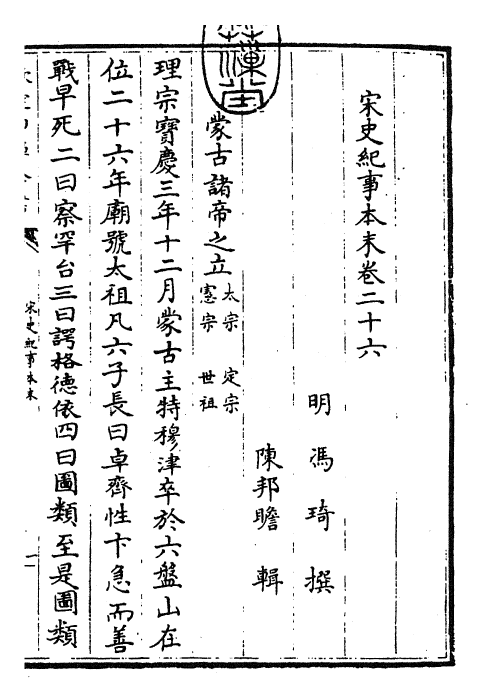 宋史紀事本末卷二十六
明 馮琦 撰
陳邦瞻 輯
蒙古諸帝之立 太宗 定宗 憲宗 世祖
理宗寶慶三年十二月蒙古主特穆津卒於六盤山在
位二十六年廟號太祖凡六子長曰卓齊性卞急而善
戰早死二曰察罕台三曰諤格德依四曰圖類至是圖類
宋史紀事本末